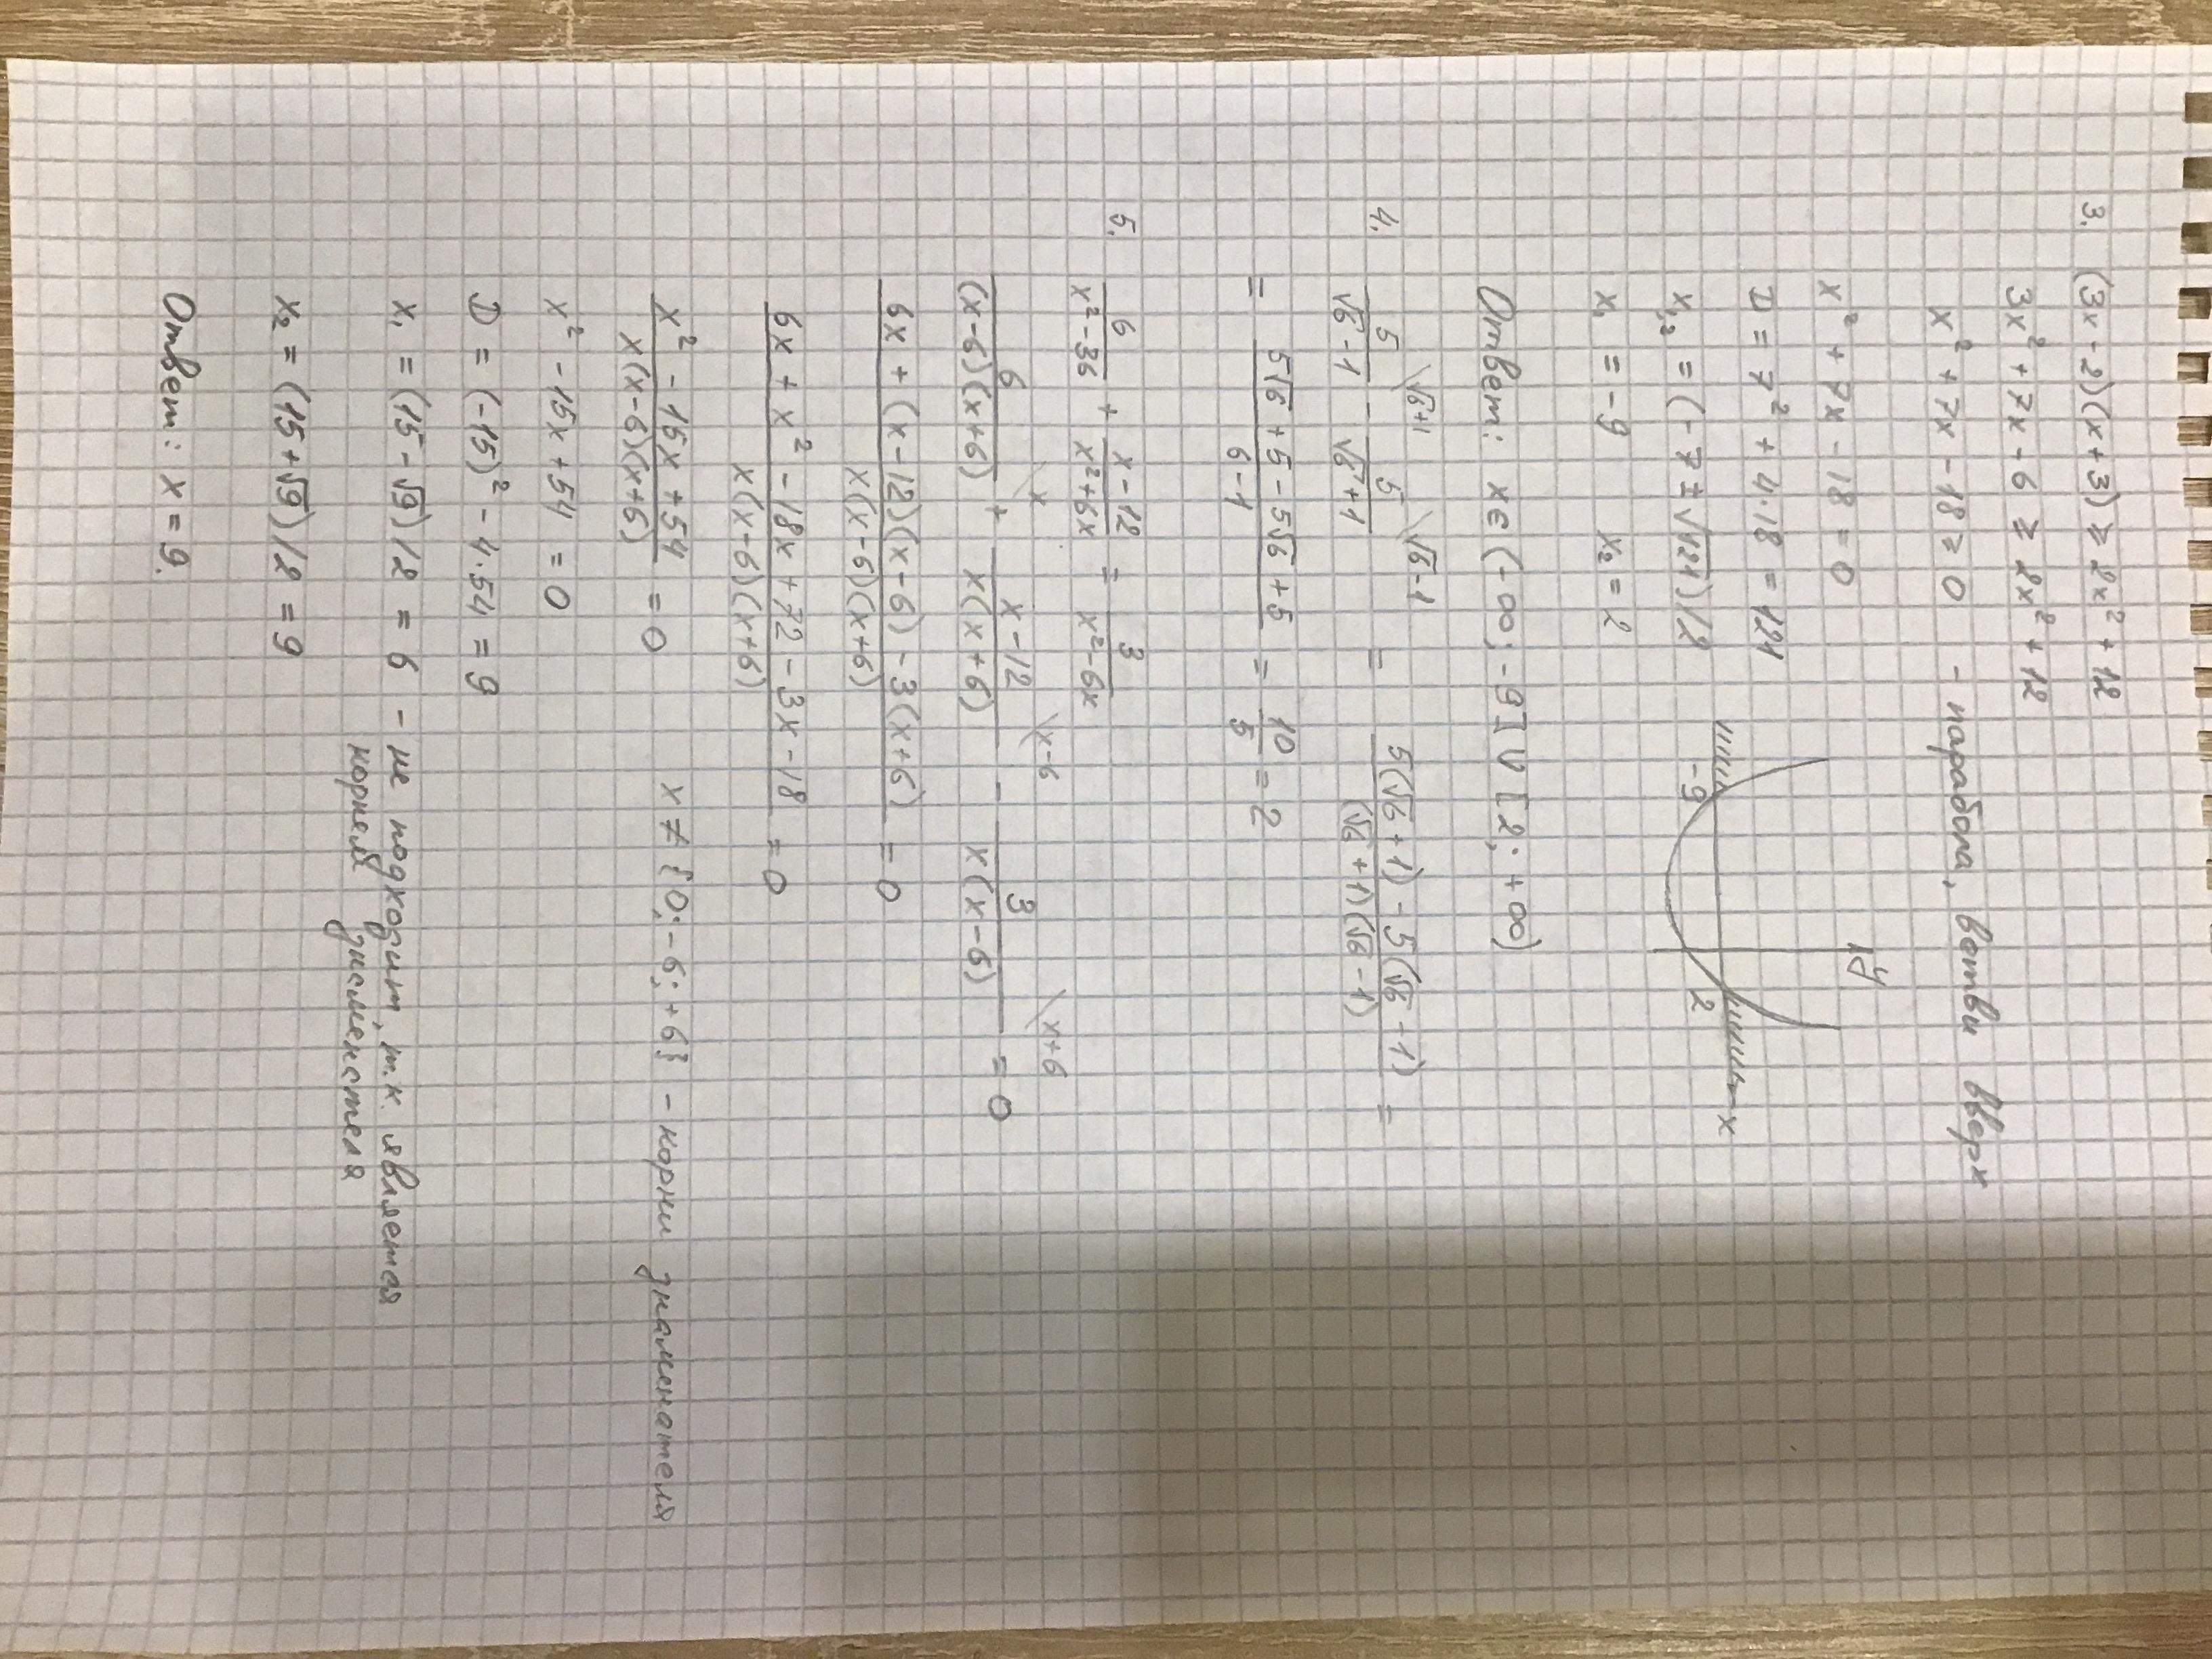 3. (3x-2)(x+3) ≥ 2x²+12
3x²+7x-6 ≥ 2x²+12
x²+7x-18 ≥ 0 - парабола, ветви вверх
x²+7x-18 = 0
y
D = 7²+4·18 = 121
x₁,₂ = (-7±√121)/2
-9 2 x
x₁ = -9 x₂ = 2
Ответ: x∈(-∞; -9] U [2; +∞)
4. 5/(√6-1) \√6+1 - 5/(√6+1) \√6-1 = (5(√6+1) - 5(√6-1))/((√6+1)(√6-1)) =
= (5√6+5-5√6+5)/(6-1) = 10/5 = 2
5. 6/(x²-36) + (x-12)/(x²+6x) = 3/(x²-6x)
6/((x-6)(x+6)) \x + (x-12)/(x(x+6)) \x-6 - 3/(x(x-6)) \x+6 = 0
(6x+(x-12)(x-6)-3(x+6))/(x(x-6)(x+6)) = 0
(6x+x²-18x+72-3x-18)/(x(x-6)(x+6)) = 0
(x²-15x+54)/(x(x-6)(x+6)) = 0 x ≠ {0; -6; +6} - корни знаменателя
x²-15x+54 = 0
D = (-15)²-4·54 = 9
x₁ = (15-√9)/2 = 6 - не подходит, т.к. является
корнем знаменателя
x₂ = (15+√9)/2 = 9
Ответ: x = 9.